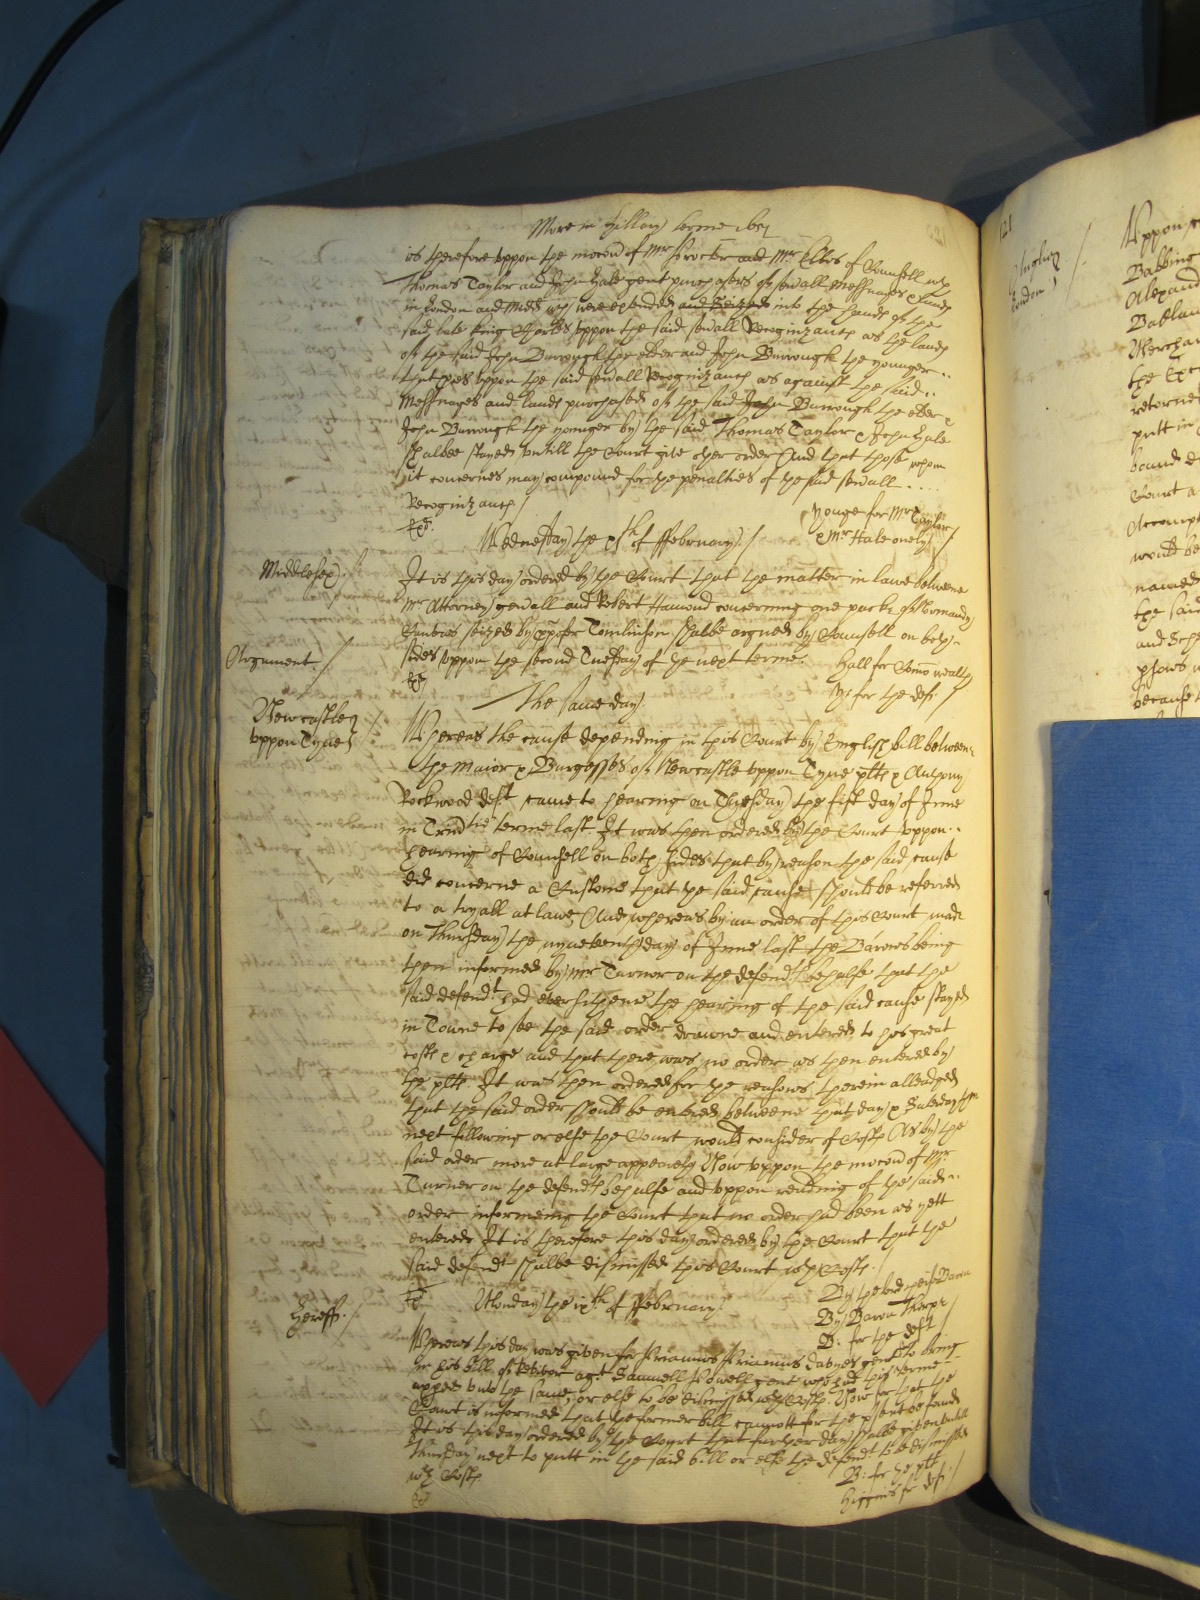 More in Hillary terme 1651
is therefore uppon the mocon of Mr Procter and Mr Ellis of Counsell wth
Thomas Taylor and John Hale gent purchasers of sevrall messuages & lands
in London and Midd wch were extended and Seized into the hands of the
said late King Charles uppon the said sevall Recognizances as the lands
of the said John Burrough the elder and John Burrough the younger
that pces uppon the said sevall Recognizances as against the said
Messuages and lands purchased of the said John Burrough the elder &
John Burrough the younger by the said Thomas Taylor & John Hale
shalbee stayed untill the Court give other order And that those whom
it concernes may compound for the penalties of the said sevall
Recognizances /
Yonge for Mr Taylor
& Mr Hale onely /
Wednesday the th of ffebruary /
Middlesex
It is this day ordered by the Court that the matter in lawe betweene
Mr Attorney genall and Robert Hamond concerning one packe of Normandy
Canvas seized by xpofer Tomlinson shalbe argued by Counsell on both
Argument
sides uppon the second Tuesday of the next terme.
Hall for Comonwealth
Y: for the deft /
The same day
Newcastle
uppon Tyne
Whereas the cause depending in this Court by English bill between
the Maior & Burgesses of Newcastle uppon Tyne plts & Anthony
Rockwood deft came to hearing on Thursday the fift day of June
in Trinitie terme last. It was then ordered by the Court uppon
hearing of Counsell on both sides that by reason the said cause
did concerne a Custome that the said cause should be referred
to a tryall at lawe And whereas by an order of this Court made
on Thursday the nyneteenth day of June last the Barons being
then informed by Mr Turnor on the defendts behalfe that the
said defendt had ever sithence the hearing of the said cause stayed
in Towne to see the said order drawne and entered to his great
costs & charge and that there was no order as then entered by
the plts. It was then ordered for the reasons therein alleadged
that the said order should be entered betweene that day & Saturday then
next following or else the Court would consider of Costs As by the
said oder more at large appeareth Now uppon the mocon of Mr
Turner on the defendts behalfe and uppon reading of the said
order informeing the Court that no order had been as yett
entered It is therefore this day ordered by the Court that the
said defendt shalbe dismissed this Court wth Costs.
By the lord cheife Baron
By Baron Thorpe
B: for the deft /
Monday the ixth of ffebruary.
Hereff. /
Whereas this day was given for Priamus Davyes gent to bring
in his bill of Rebivor agt Samuell Powell gent who had this terme
apped unto the same, or else to be dismissed wth Costs. Now for that the
Court is informed that the former bill cannott for the psent be found
It is this day ordered by the Court that further day shalbe given untill
Thursday next to putt in the said bill or else the defendt to be dismissed
wth Costs.
B: for the plt
Higgins for deft /
121
London
Uppon
Babbing
Alexand
Merchan
the Exc
returned
putt in
bound
Court a
Accompt
would be
named
the said
and Sch
because